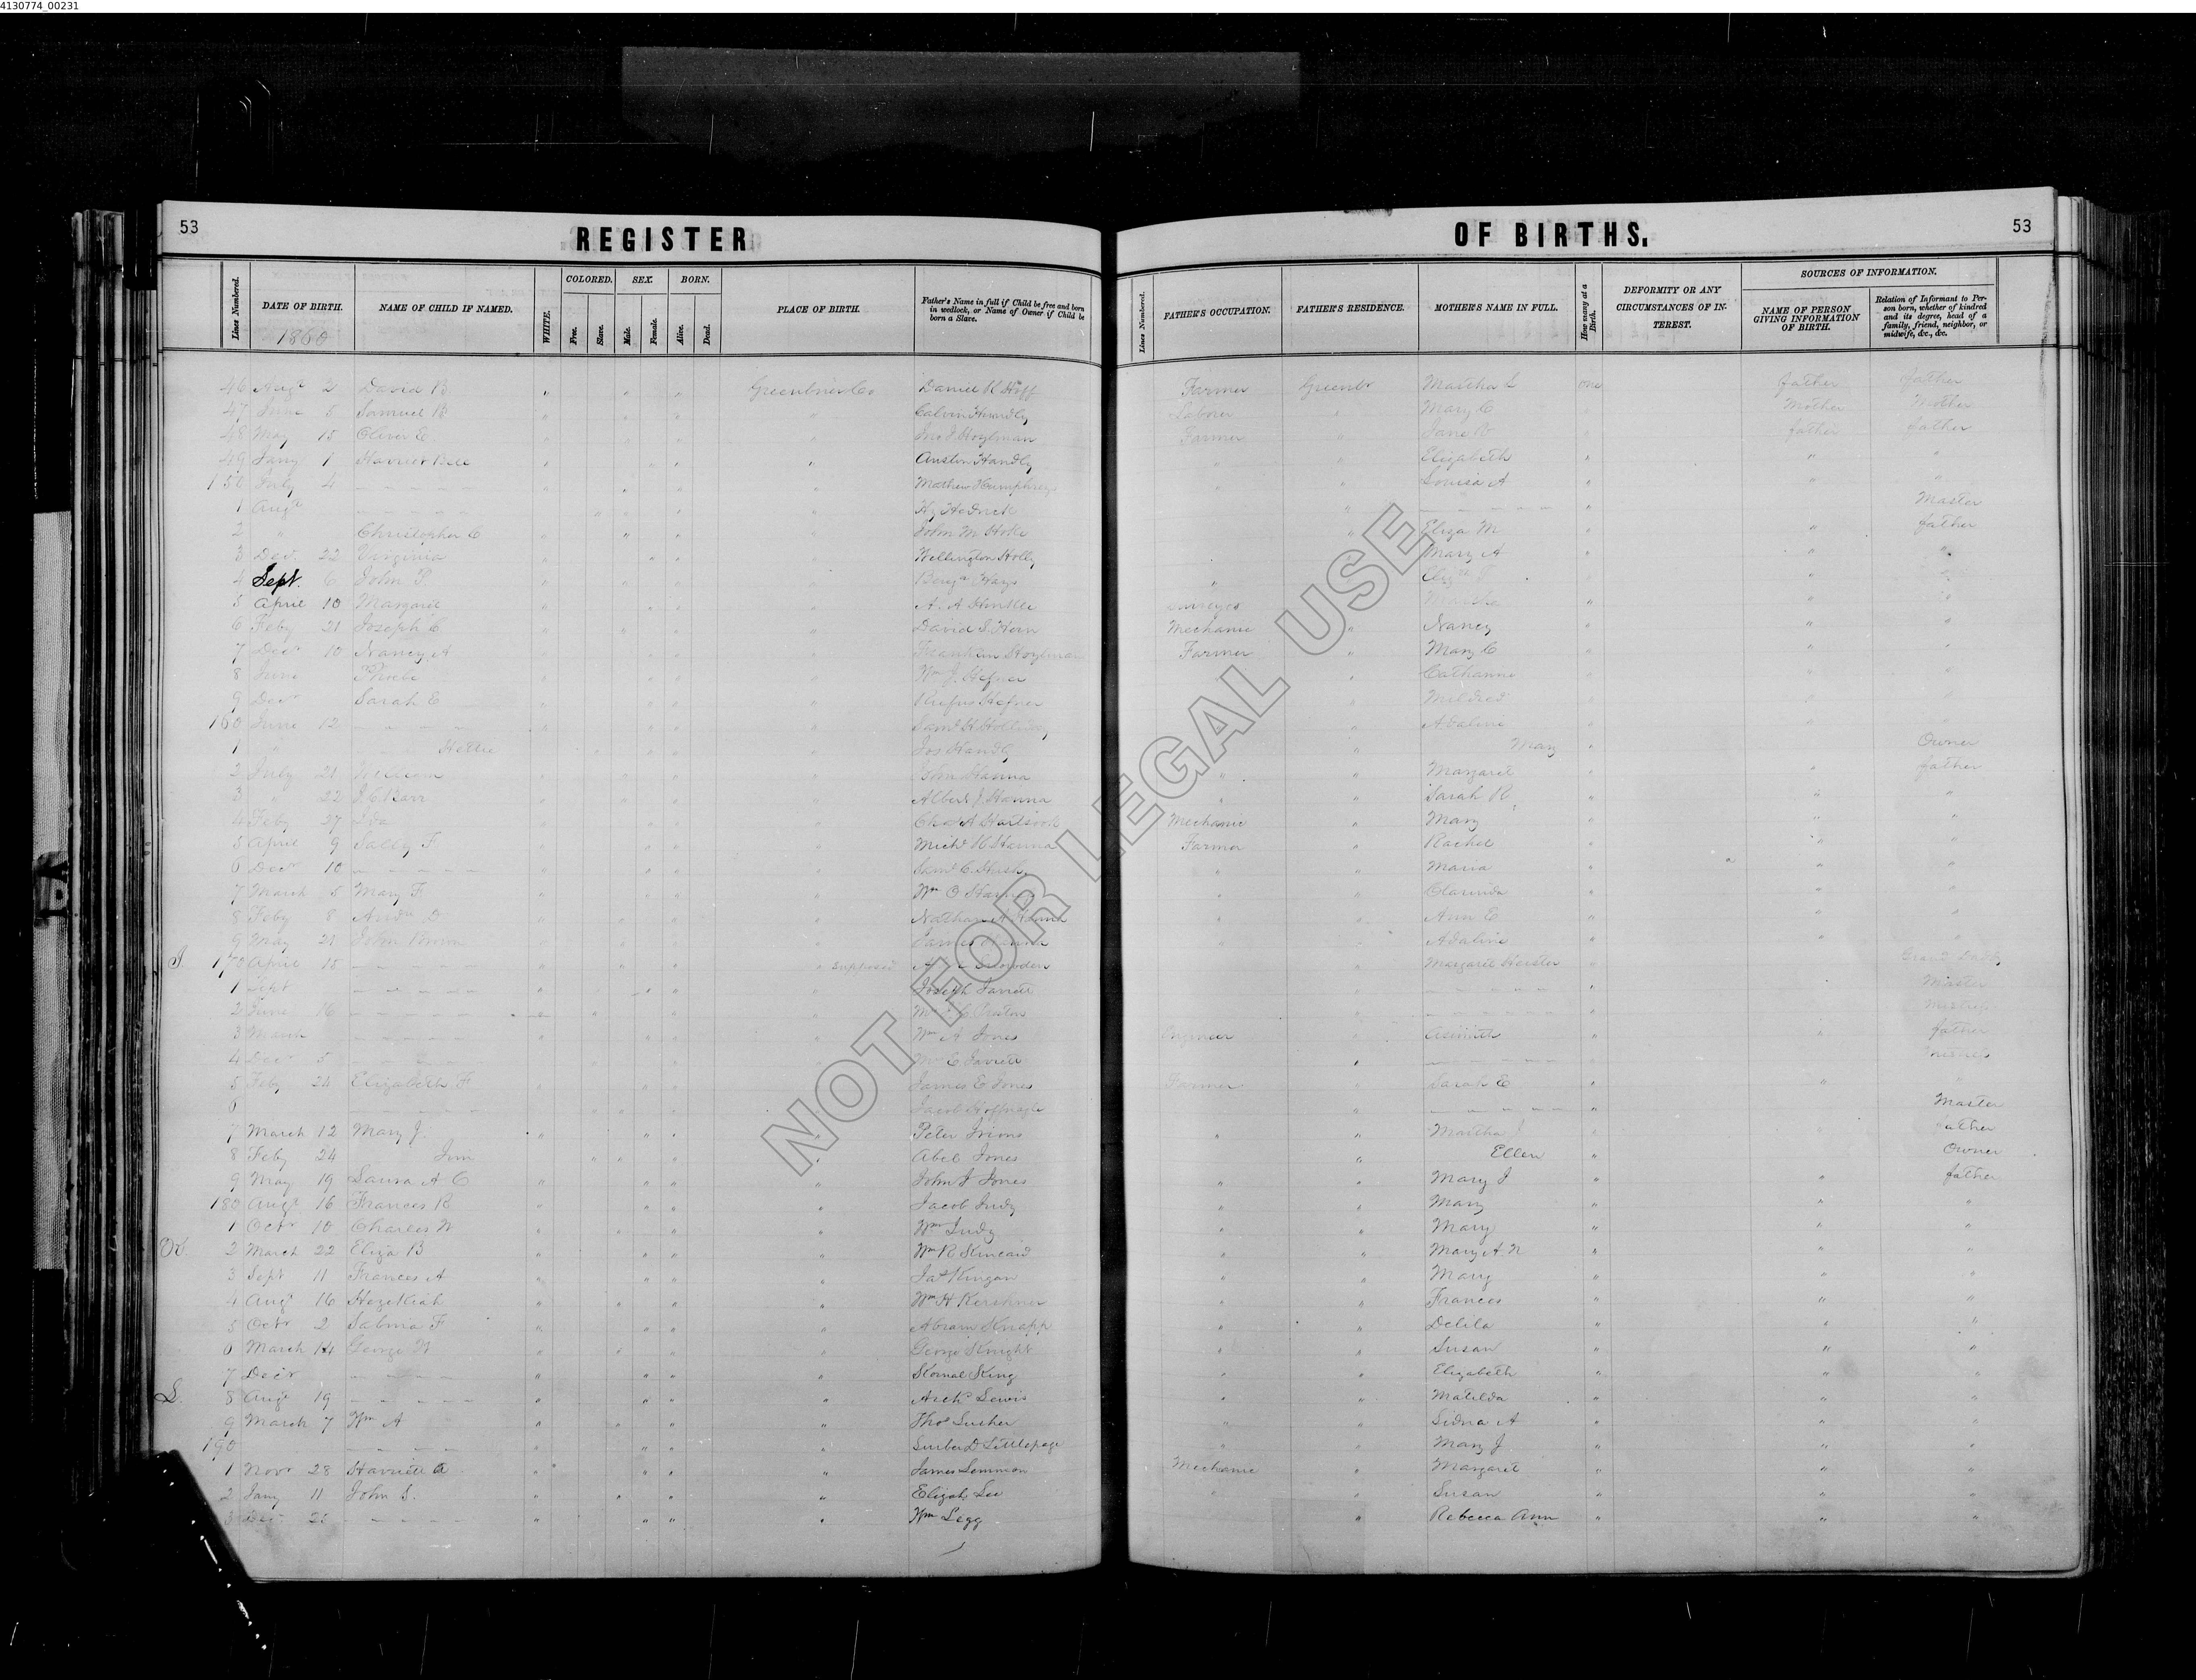 4130774_00231
53
REGISTER
OF BIRTHS.
53
Lines Numbered.
DATE OF BIRTH.
1860
NAME OF CHILD IF NAMED.
WHITE.
COLORED.
Free.
Slave.
SEX.
Male.
Female.
BORN.
Alive.
Dead.
PLACE OF BIRTH.
Father's Name in full if Child be free and born in wedlock, or Name of Owner if Child be born a Slave.
Lines Numbered.
FATHER'S OCCUPATION.
FATHER'S RESIDENCE.
MOTHER'S NAME IN FULL.
How many at a Birth.
DEFORMITY OR ANY CIRCUMSTANCES OF INTEREST.
SOURCES OF INFORMATION.
NAME OF PERSON GIVING INFORMATION OF BIRTH.
Relation of Informant to Person born, whether of kindred and its degree, head of a family, friend, neighbor, or midwife, &c., &c.
46 Augt 2 David B. " " " Greenbrier Co Daniel K Huff Farmer Greenbr Martha S one father father
47 June 5 Samuel B " " " " Calvin Handly Laborer " Mary C " Mother Mother
48 May 15 Oliver E. " " " " Jno I Hoylman Farmer " Jane " father father
49 Jany 1 Harriet Bell " " " " Austin Handly " " Elizabeth " " "
150 July 4 — — — — " " " " Mathew Humphreys " " Louisa A " " "
1 Augt — — — — — " " " " Hy Hedrick " — — — — — " Master
2 " Christopher C " " " John M Hoke " Eliza M " " father
3 Dec. 22 Virginia " " " " Wellington Holly " Mary A " " "
4 Sept. 6 John P " " " " Hays " " "
5 April 10 Margaret " " " " A. A Hinkle Martha " " "
6 Feby 21 Joseph C " " " " David S. Hern Mechanic " Nancy " " "
7 Decr 10 Nancy A " " " " Franklin Hoylman Farmer " Mary C " " "
8 June Phoebe " " " " Wm J. Hefner " Catharine " " "
9 Decr Sarah E " " " " Rufus Hefner " Mildred " " "
160 June 12 — — — — — " " " " Saml H Holliway " Adaline " " "
1 " Hettie " " " " Jos Handly " Mary " Owner
2 July 21 William " " " " John Hanna " " Margaret " " father
3 " 22 J. C. Barr " " " " Albert J. Hanna " " Sarah R " " "
4 Feby 27 Ida " " " " Chas A Hartsook Mechanic " Mary " " "
5 April 9 Sally F " " " " Michl H Hanna Farmer " Rachel " " "
6 Decr 10 — — — — — " " " " Saml C. " " Maria " " "
7 March 5 Mary F " " " " Wm O " " Clarinda " " "
8 Feby 8 Andw D " " " " Nathan A Hanna " " Ann E " " "
9 May 21 John Brown " " " " James Hanna " Adaline " " "
J. 170 April 18 — — — — — " " " " supposed " Margaret "
1 Sept — — — — — " " " " Joseph Jarrett " — — — — — " Master
2 June 16 — — — — — " "
3 March — — — — — " " " " Wm A Jones Engineer " " " father
4 Decr 5 — — — — — " " E Jarrett " — — — — — "
5 Feby 24 Elizabeth F " " " James E Jones Farmer " Sarah E " " "
6 — — — — — " " " " Jacob " — — — — — " Master
7 March 12 Mary J. " " " " Peter Irions " " Martha J " father
8 Feby 24 Jim " " " " Abel Jones " Ellen " Owner
9 May 19 Laura A C " " " " John I Jones " " Mary J " " father
180 Augt 16 Frances R " " " " Jacob Judy " " Mary " " "
1 Octr 10 Charles W " " " " Wm Judy " " Mary " " "
K. 2 March 22 Eliza B " " " " Wm R Kincaid " " Mary A. N " " "
3 Sept 11 Frances A " " " " Jas Kingan " " Mary " " "
4 Augt 16 Hezekiah " " " " Wm H Kershner " " Frances " " "
5 Octr 2 Salina F " " " " Abram Knapp " " Delila " " "
6 March 14 George W " " " " George Knight " " Susan " " "
7 Decr — — — — " " " " King " " Elizabeth " " "
L. 8 Augt 19 — — — — — " " " " Archd Lewis " " Matilda " " "
9 March 7 Wm A " " " " Thos Lusher " " Sidna A " " "
190 — — — — " " " " D Littlepage " " Mary J. " " "
1 Novr 28 Harriett A " " " " James Lemmon Mechanic " Margaret " " "
2 Jany 11 John S. " " " " Elijah Lee " " Susan " " "
3 Decr — — — — — " " " " Wm Legg " Rebecca Ann " " "
NOT FOR LEGAL USE